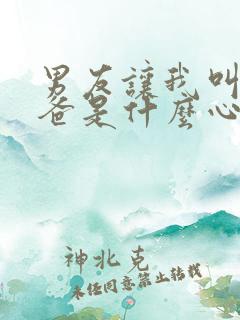 男友讓我叫
爸是什麼心
神北克
未经同意禁止转载